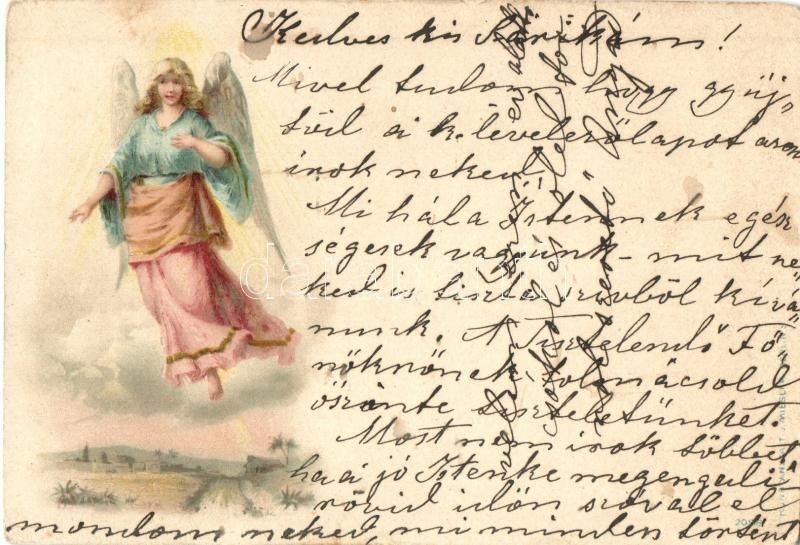 Kedves kis Sárikám!
Mivel tudom hogy gyüj-
töd a k. levelezőlapot azon
irok neked.
Mi hála Istennek egés
ségesek vagyunk - mit ne
ked is tiszta szivből kivá
nunk. A Tisztelendő Fő
nöknőnek tolmácsold
őszinte tiszteletünket.
Most nem irok többet
ha a jó Istenke megengedi
rövid időn szóval el
mondom neked, mi minden történt
csókol és ölel
szerető